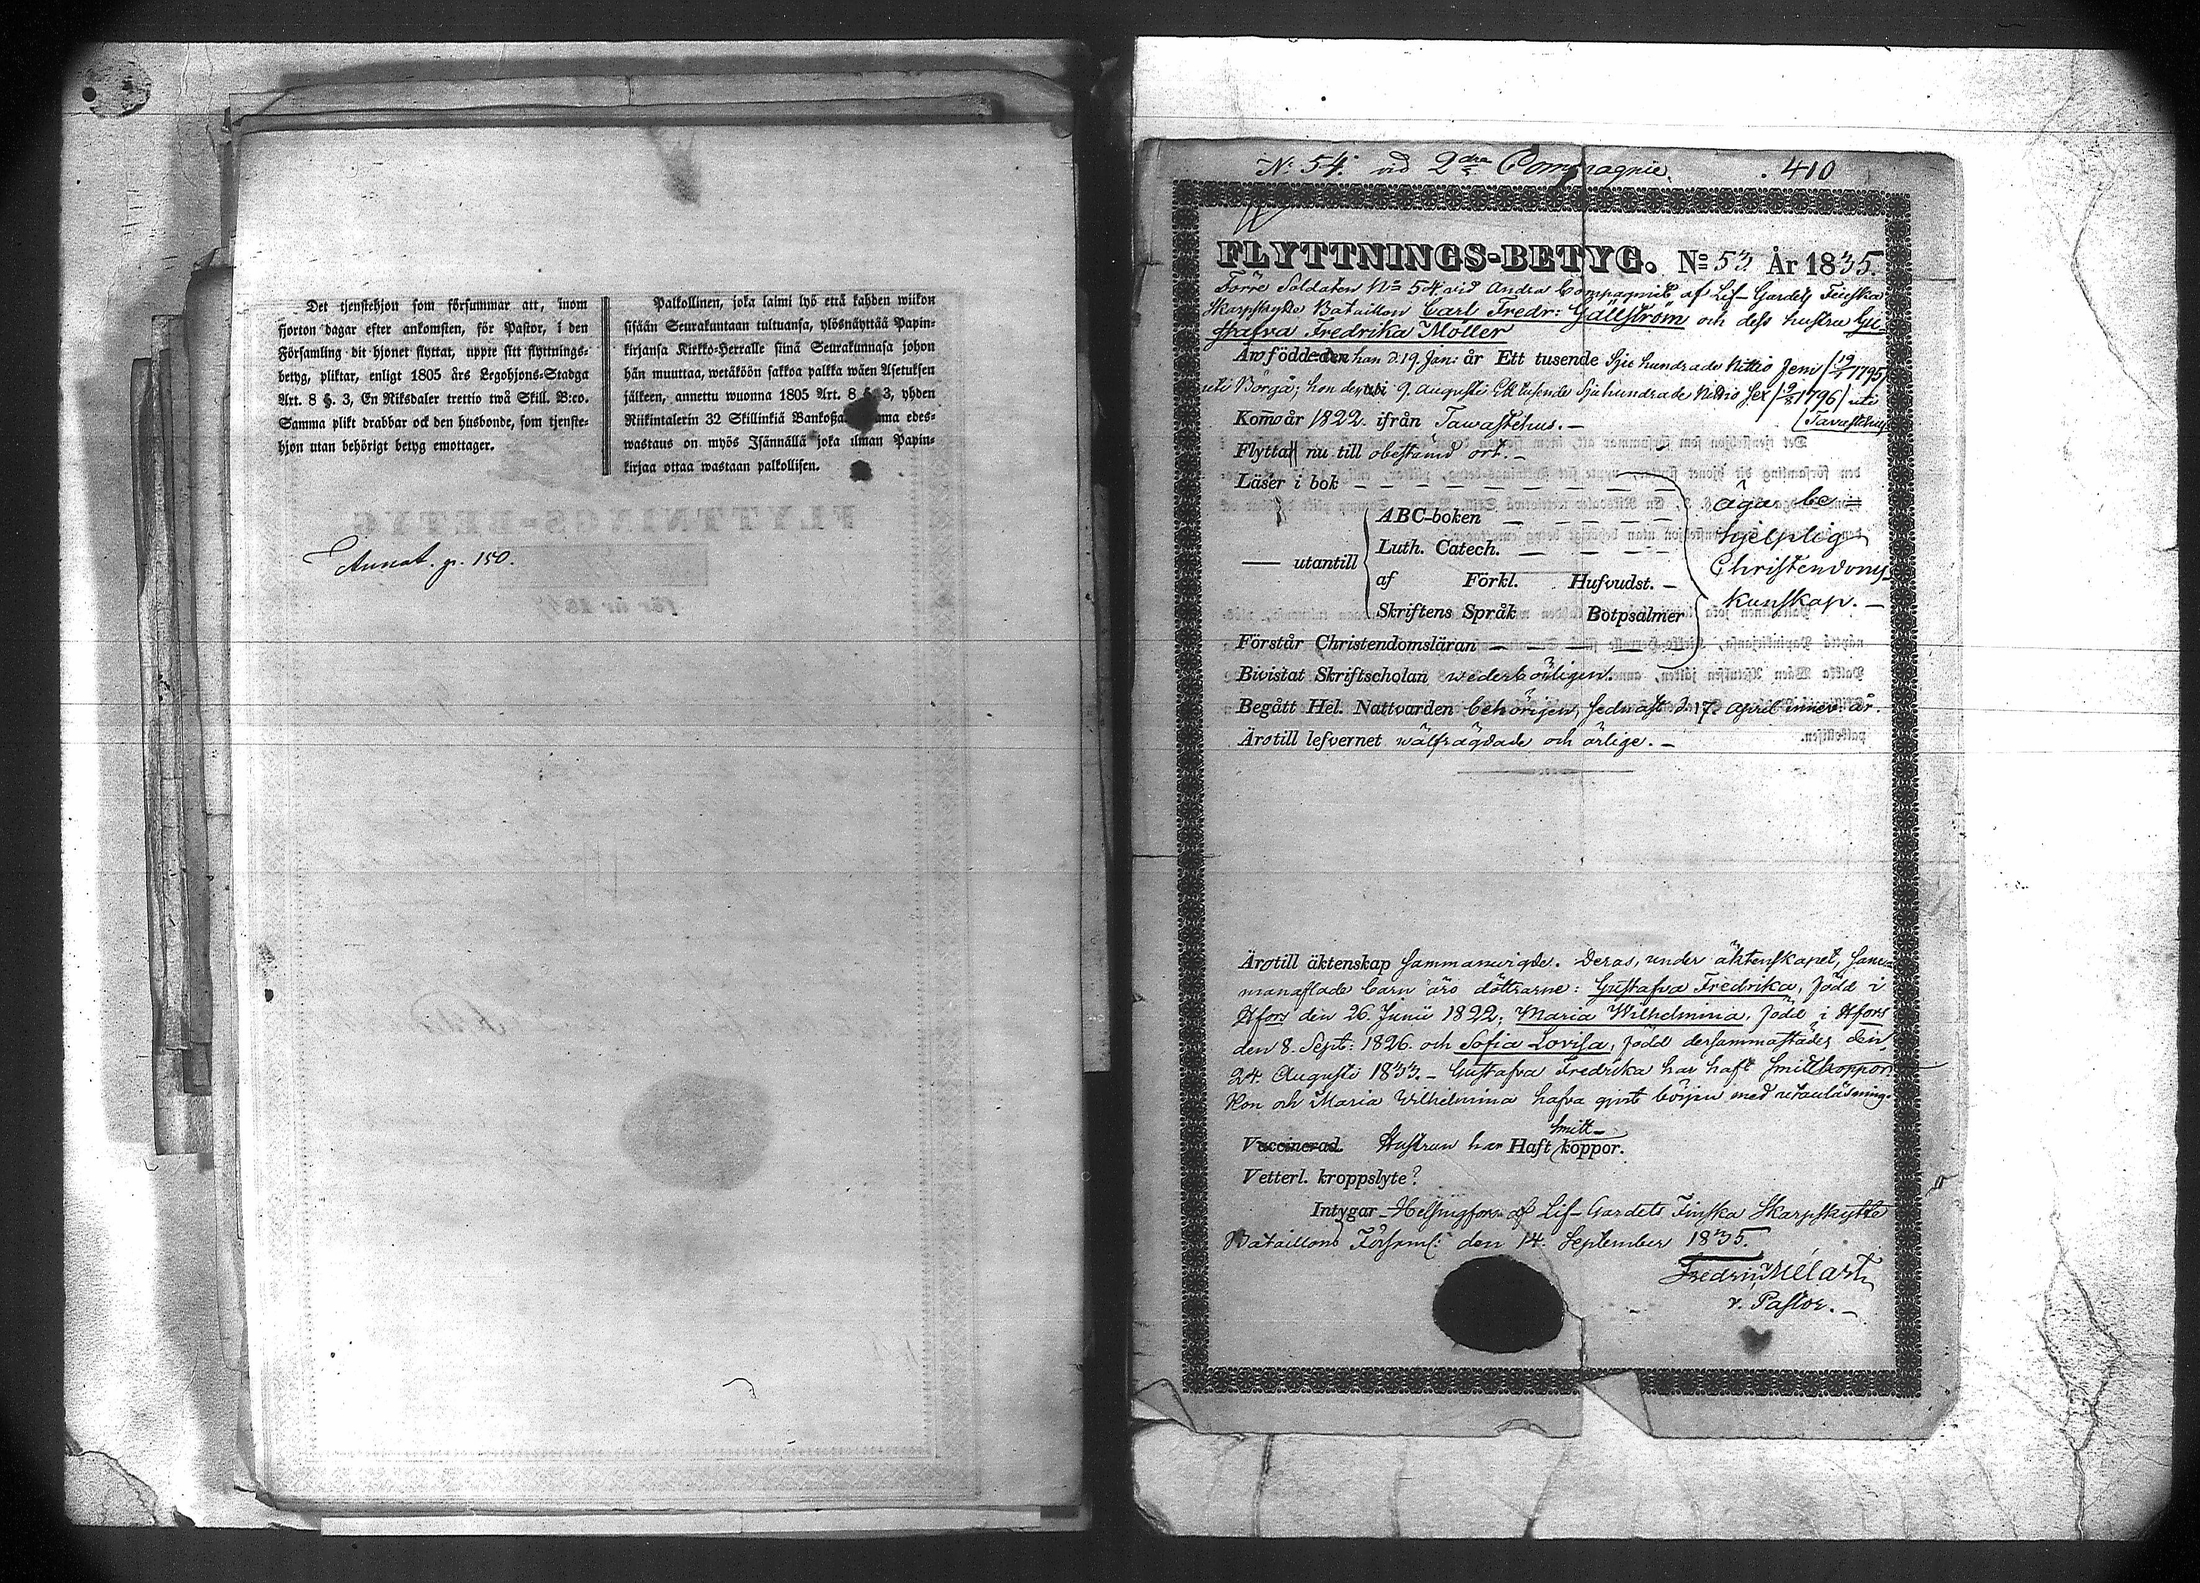 Det tjenstehjon som försummar att, inom
fjorton dagar efter ankomsten, för Pastor, i den
Församling dit hjonet flyttat, uppte sitt flyttnings-
betyg, pliktar, enligt 1805 års Legohjons-Stadga
Art. 8 §. 3, En Riksdaler trettio twå Skill. B:co.
Samma plikt drabbar ock den husbonde, som tjenste-
hjon utan behörigt betyg emottager.
Palkollinen, joka laimi lyö että kahden wiikon
sisään Seurakuntaan tultuansa, ylösnäyttää Papin-
kirjansa Kirkko-Herralle siinä Seurakunnasa johon
hän muuttaa, wetäköön sakkoa palkka wäen Asetuksen
jälkeen, annettu wuonna 1805 Art. 8 §. 3, yhden
Riikintalerin 32 Skillinkiä Bankoßa. edes-
wastaus on myös Isännällä joka ilman Papin-
kirjaa ottaa wastaan palkollisen.
FLYTTNINGS-BETYG
Annot. p. 150.
för år 184
No 54. vid 2dra Compagnie. 410
FLYTTNINGS-BETYG. No 53. År 1835.
Förre Soldaten No 54 vid Andra Compagniet af Lif-Gardets Finska
Skarpskytte Bataillon Carl Fredr: Gällström och dess hustru Gu-
stafva Fredrika Moller
Äro födde den han d. 19. Jan: år Ett tusende Sju hundrade Nittio fem (19/1 1795)
uti Borgå; hon den 9. Augusti Ett tusende Sju hundrade Nittio Sex (9/8 1796) uti
Kom̄o år 1822. ifrån Tawastehus. - (Tavastehus
Flytta nu till obestämd ort. -
Läser i bok
äga be=
hjelplig
Christendoms
kunskap. -
utantill
ABC-boken
Luth. Catech.
af Förkl. Hufvudst.
Skriftens Språk Botpsalmer
Förstår Christendomsläran
Bivistat Skriftscholan wederbörligen.
Begått Hel. Nattvarden behörigen, sednast d. 17. April innev: år.
Äro till lefvernet wälfrägdade och ärlige. -
Äro till äktenskap sammanwigde. Deras, under äktenskapet, sam=
manaflade barn äro döttrarne: Gustafva Fredrika, född i
Hfors den 26. Junii 1822; Maria Wilhelmina, född i Hfors
den 8. Sept: 1826. och Sofia Lovisa, född dersammastädes den
24. Augusti 1833. - Gustafva Fredrika har haft smittkoppor
Hon och Maria Wilhelmina hafva gjort början med utanläsning.
Vaccinerad Hustrun har Haft smitt- koppor.
Vetterl. kroppslyte?
Intygar Helsingfors af Lif-Gardets Finska Skarpskytte
Bataillons Försml: den 14. September 1835.
Fredric Melart
v. Pastor. -